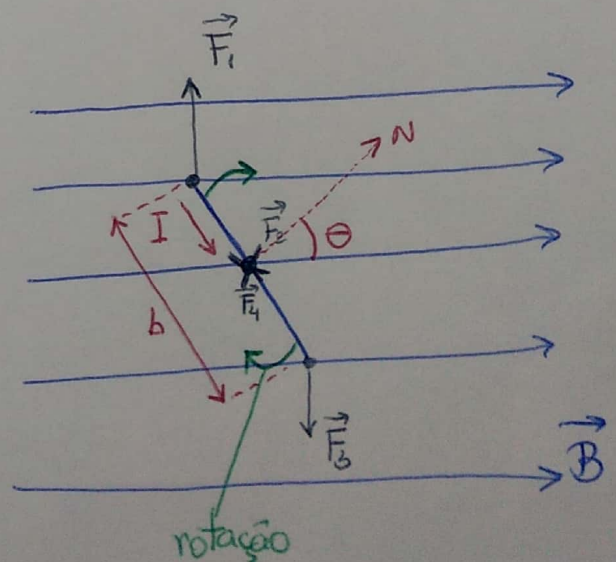 F₁
N
I
F₂
θ
F₄
b
F₃
B
rotação